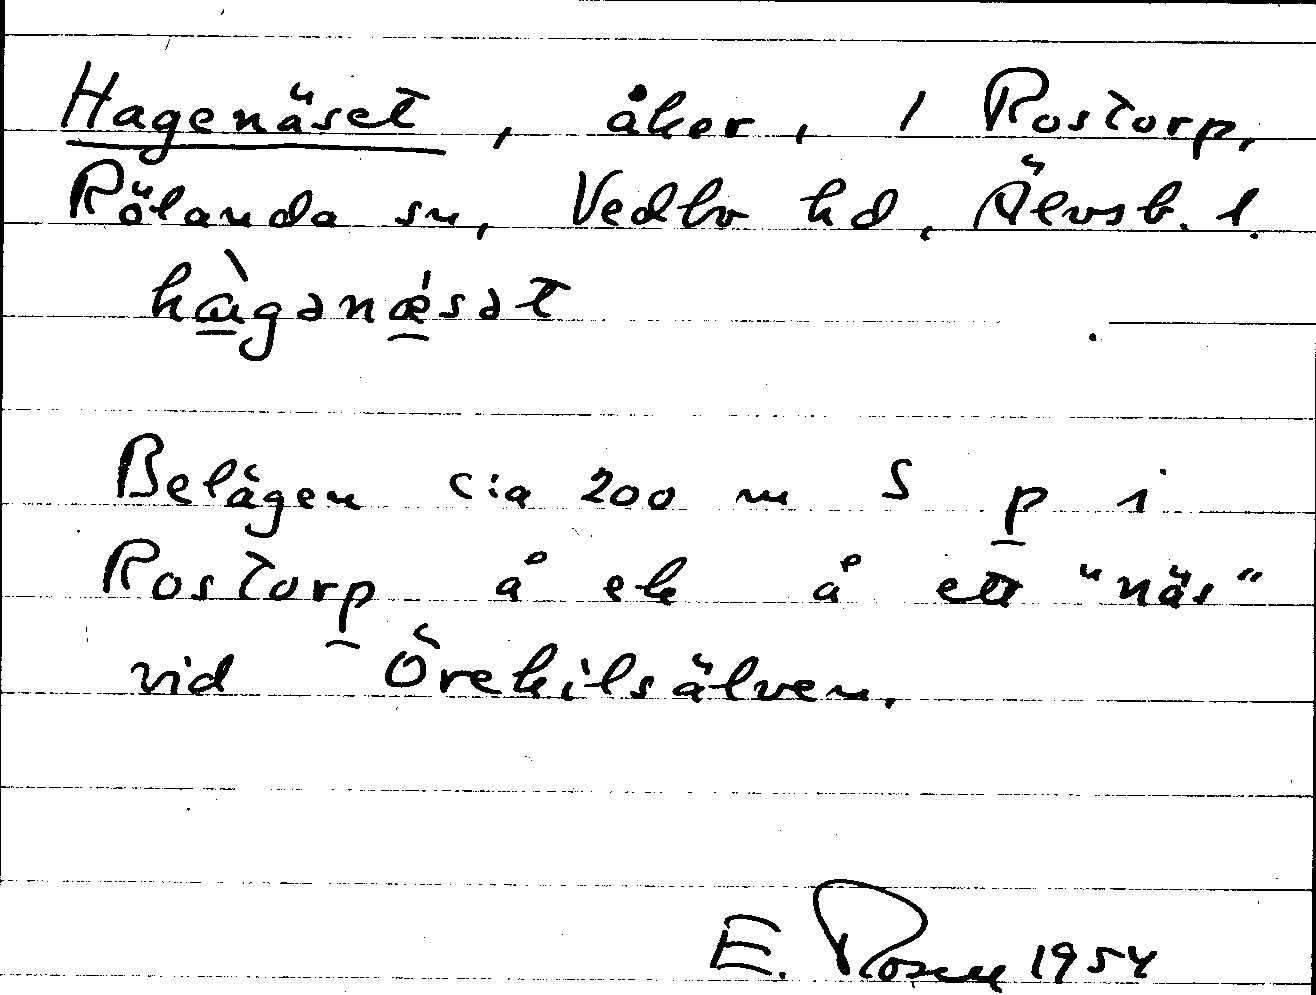 Hagenäset, åker, 1 Rostorp,
Rölanda sn, Vedbo hd, Älvsb. l.
hàgənǽsət
Belägen c:a 200 m S p i
Rostorp å ek å ett "näs"
vid Örekilsälven.
E. Rosell 1954